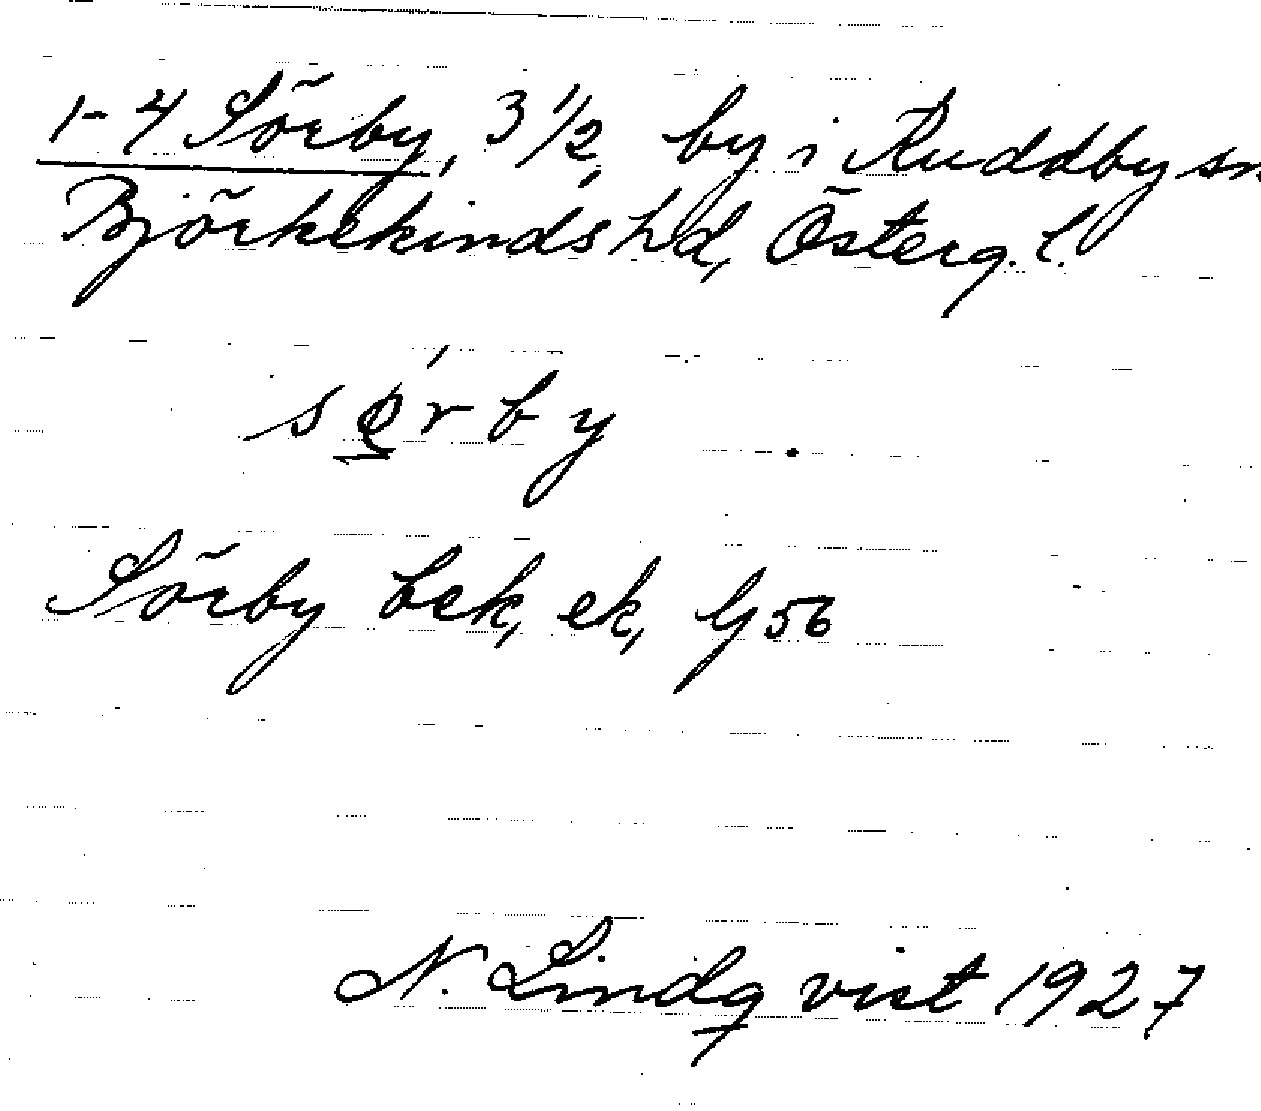 1-4 Sörby, 3 1/2, by i Kuddby sn
Björkekinds hd, Österg. l.
Sörby bek, ek, G 56
N. Lindqvist 1927